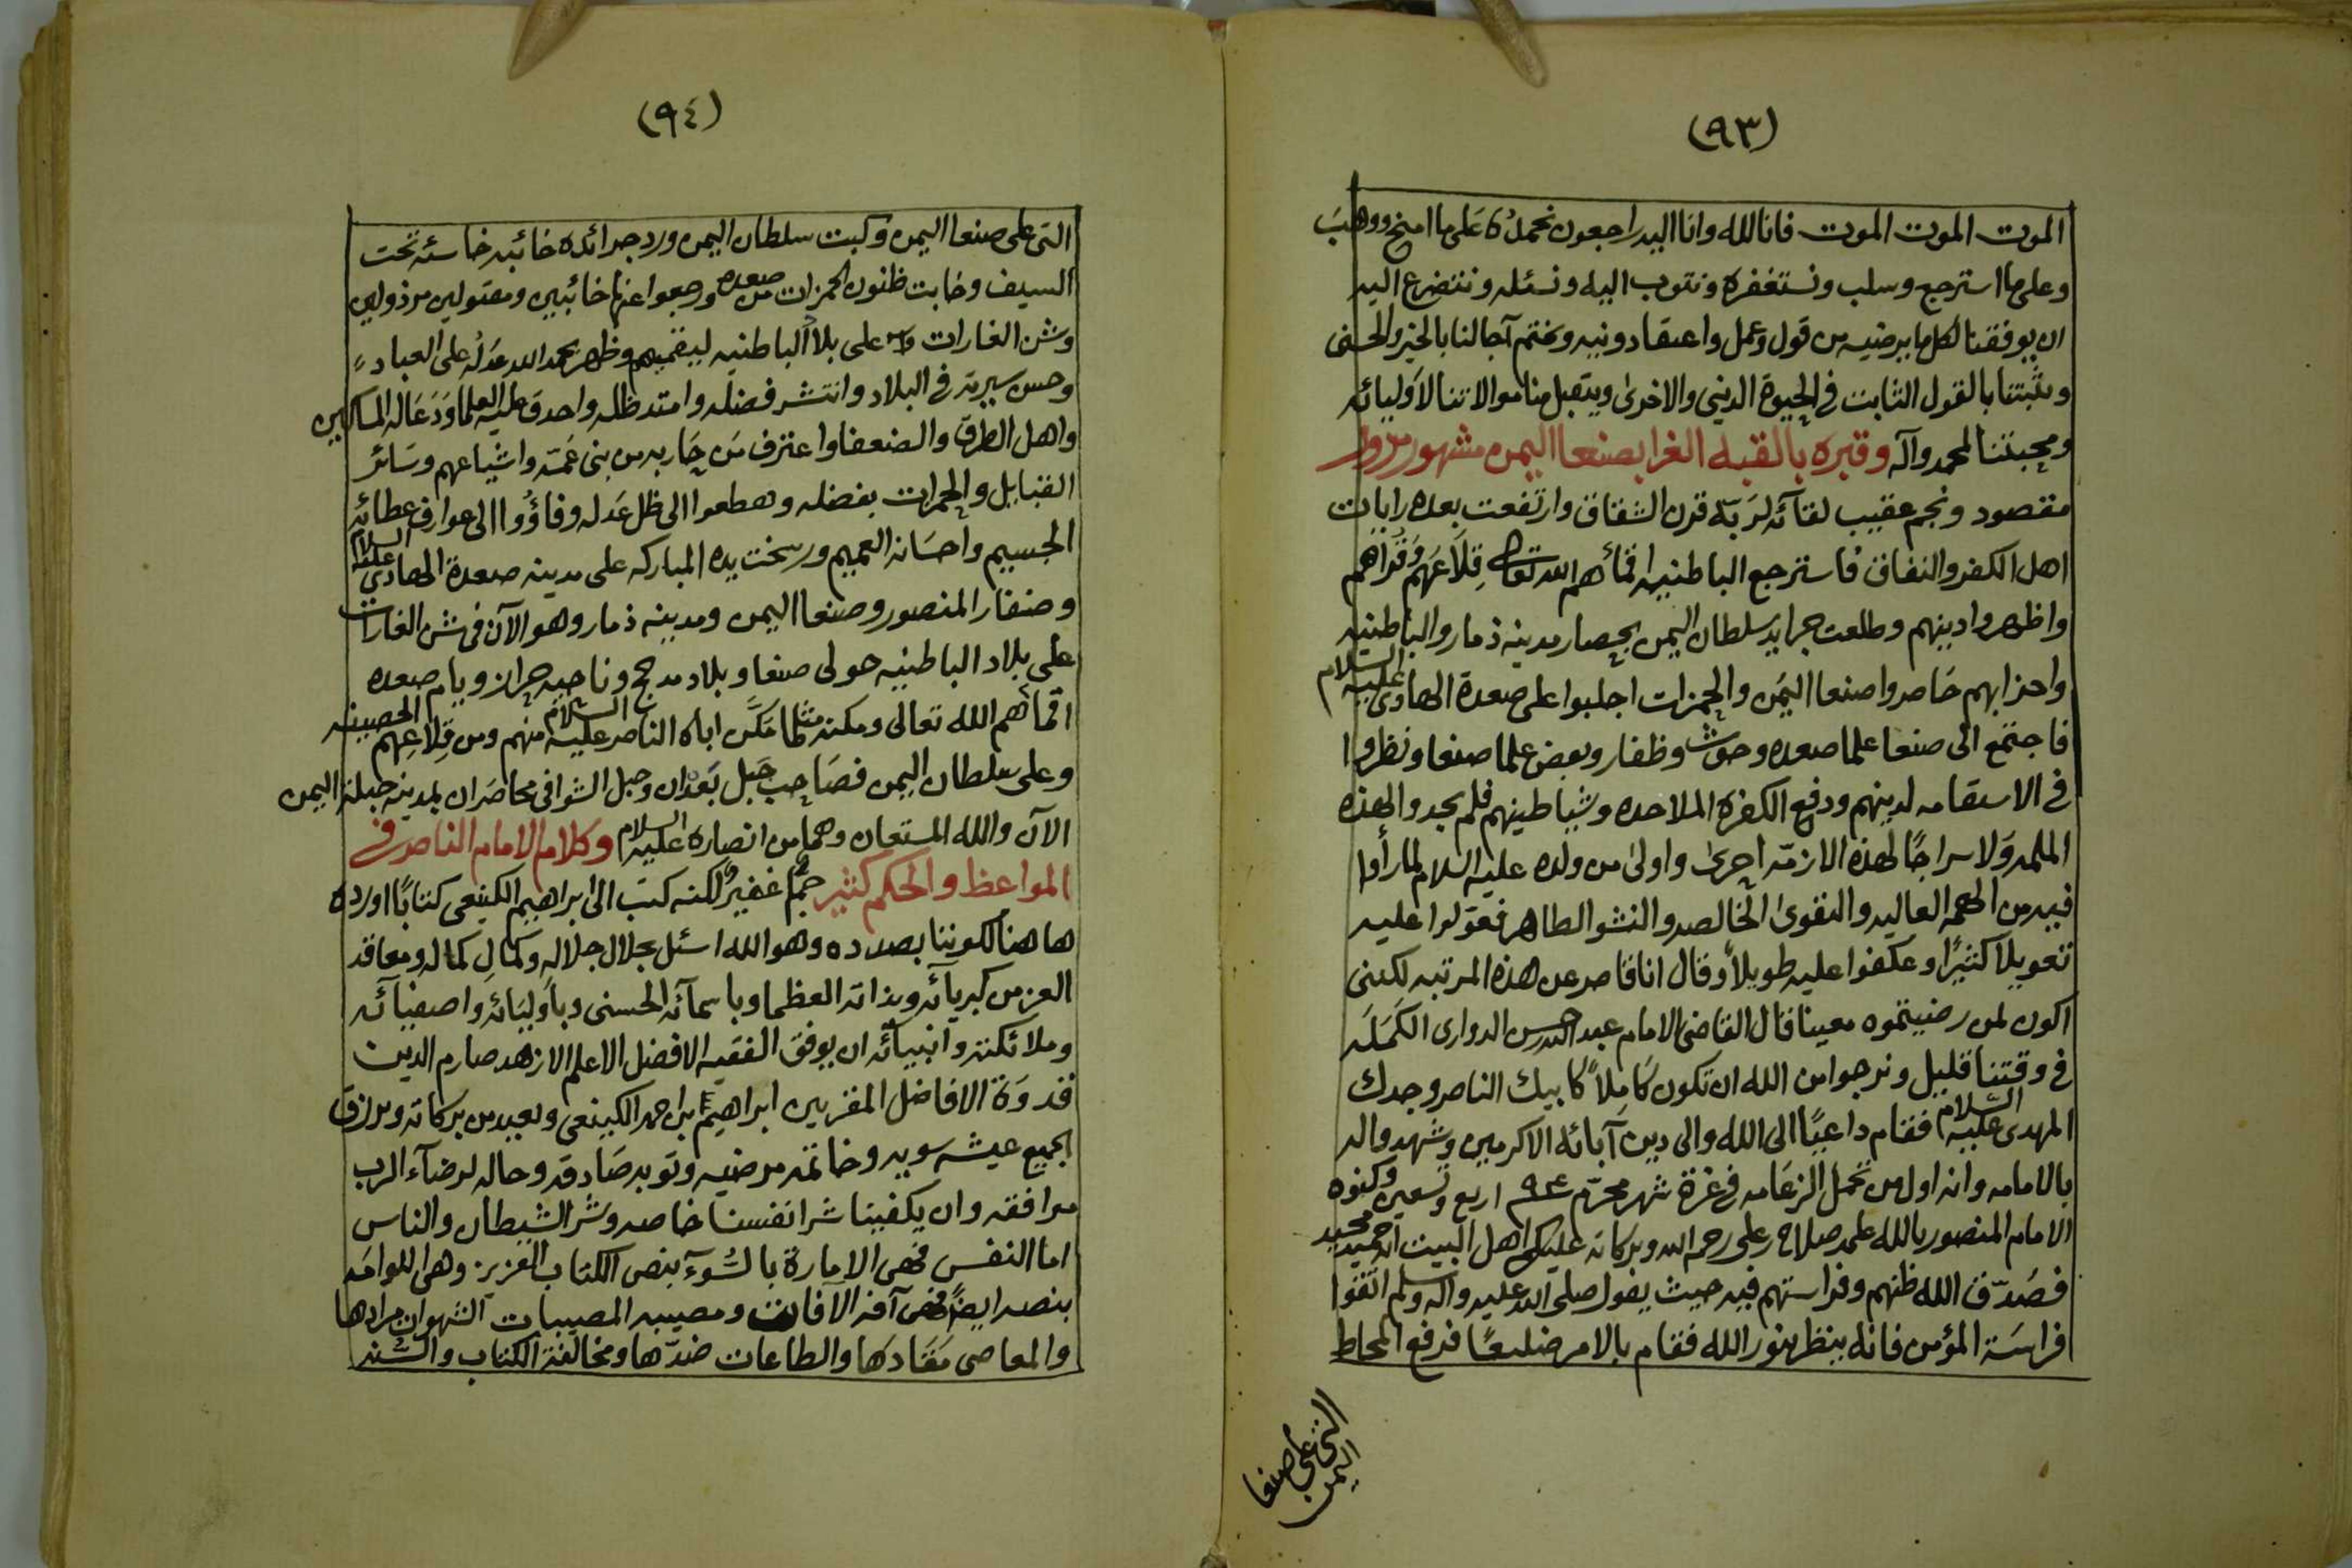 (٩٣)
الموت الموت الموت فانا لله وانا اليه راجعون نحمده على ما امنح ووهب
وعلى ما استرجع وسلب ونستغفره ونتوب اليه ونسئله ونتضرع اليه
ان يوفقنا لكل ما يرضيه من قول وعمل واعتقاد ونيه ويختم آجالنا بالخير والحسنى
ويثبتنا بالقول الثابت في الحيوة الدنيى والاخرى ويتقبل منا موالاتنا لاوليائه
ومحبتنا لمحمد وآله وقبره بالقبه الغرا بصنعا اليمن مشهور مزور
مقصود ونجم عقيب لقآئه لربه قرن الشقاق وارتفعت بعده رايات
اهل الكفر والنفاق فاسترجع الباطنيه اقمأهم الله تعالى قلاعهم وقراهم
واظهروا دينهم وطلعت جرايد سلطان اليمن بحصار مدينه ذمار والباطنيه
واحزابهم حاصروا صنعا اليمن والحمزات اجلبوا على صعدة الهادي عليه السلام
فاجتمع الى صنعا علما صعده وحوث وظفار وبعض علما صنعا ونظروا
في الاستقامه لدينهم ودفع الكفرة الملاحده وشياطينهم فلم يجدوا لهذه
الملمه ولا سراجًا لهذه الازمه احرى واولى من ولده عليه السلام لما رأوا
فيه من الهمه العاليه والتقوى الخالصه والنشو الطاهر فعولوا عليه
تعويلا كثيرًا وعكفوا عليه طويلاً وقال انا قاصر عن هذه المرتبه لكننى
اكون لمن رضيتموه معينا قال القاضى الامام عبد الله بن حسن الدوارى الكمله
في وقتنا قليل ونرجوا من الله ان تكون كاملاً كابيك الناصر وجدك
المهدى عليه السلام فقام داعيًا الى الله والى دين آبائه الاكرمين وشهد والد
بالامامه وانه اول من تحمل الزعامه في غرة شهر محرم ٩٤ اربع وتسعين وكنوه
الامام المنصور بالله على صلاح رعلى رحمه الله وبركاته عليكم اهل البيت انه حميد مجيد
فصدّق الله ظنهم وفراستهم فيه حيث يقول صلى الله عليه وآله وسلم اتقوا
فراسة المؤمن فانه ينظر بنور الله فقام بالامر ضليعًا فدفع المحاط
التى على صنعا
اليمن
(٩٤)
التى على صنعا اليمن وكبت سلطان اليمن ورد جرائده خائبه خاسئه تحت
السيف وخابت ظنون الحمزات من صعده ورجعوا عنها خائبين ومقتولين مرذولين
وشن الغارات على بلاد الباطنيه ليقميهم وظهر بحمد الله عدله على العباد
وحسن سيرته في البلاد وانتشر فضله وامتد ظله واحدق عليه العلما ودعا له المساكين
واهل الطرق والضعفا واعترف من حاربه من بنى عمه واشياعهم وسائر
القبايل والحمزات بفضله وهطعوا الى ظل عدله وفاؤوا الى عوارف عطائه
الجسيم واحسانه العميم ورسخت يده المباركه على مدينه صعدة الهادي عليه السلام
وضفار المنصور وصنعا اليمن ومدينه ذمار وهو الآن في شن الغارات
على بلاد الباطنيه حولى صنعا وبلاد مدحج وناحيه حراز ويام صعده
اقمأهم الله تعالى ومكنه مثلما مكن اباه الناصر عليه السلام منهم ومن قلاعهم الحصينه
وعلى سلطان اليمن فصاحب جبل بعدان وجبل الشوافى محاصران لمدينه جبله اليمن
الآن والله المستعان وهما من انصاره عليه السلام وكلام الامام الناصر في
المواعظ والحكم كثير جمٌّ غفيرٌ لكنه كتب الى ابراهيم الكينعى كتابًا اورده
هاهنا لكوننا بصدده وهو الله اسئل بجلال جلاله وكمالِ كماله ومعاقد
العز من كبريائه وبذاته العظما وباسمآئه الحسنى وباوليائه واصفيآئه
وملائكته وانبيآئه ان يوفق الفقيه الافضل الاعلم الازهد صارم الدين
قدوة الافاضل المقربين ابراهيم ابن احمد الكينعى ويعيد من بركاته ويرزق
الجميع عيشه سويه وخاتمه مرضيه وتوبه صادقه وحاله لرضآء الرب
موافقه وان يكفينا شر انفسنا خاصه وشر الشيطان والناس
اما النفس فهي الامارة بالسوء بنص الكتاب العزيز وهي اللوامه
بنصه ايضًا فهى آفه الآفات ومصيبه المصيبات الشهوات مرادها
والمعاصى مقادها والطاعات ضدّها ومخالفة الكتاب والسنه